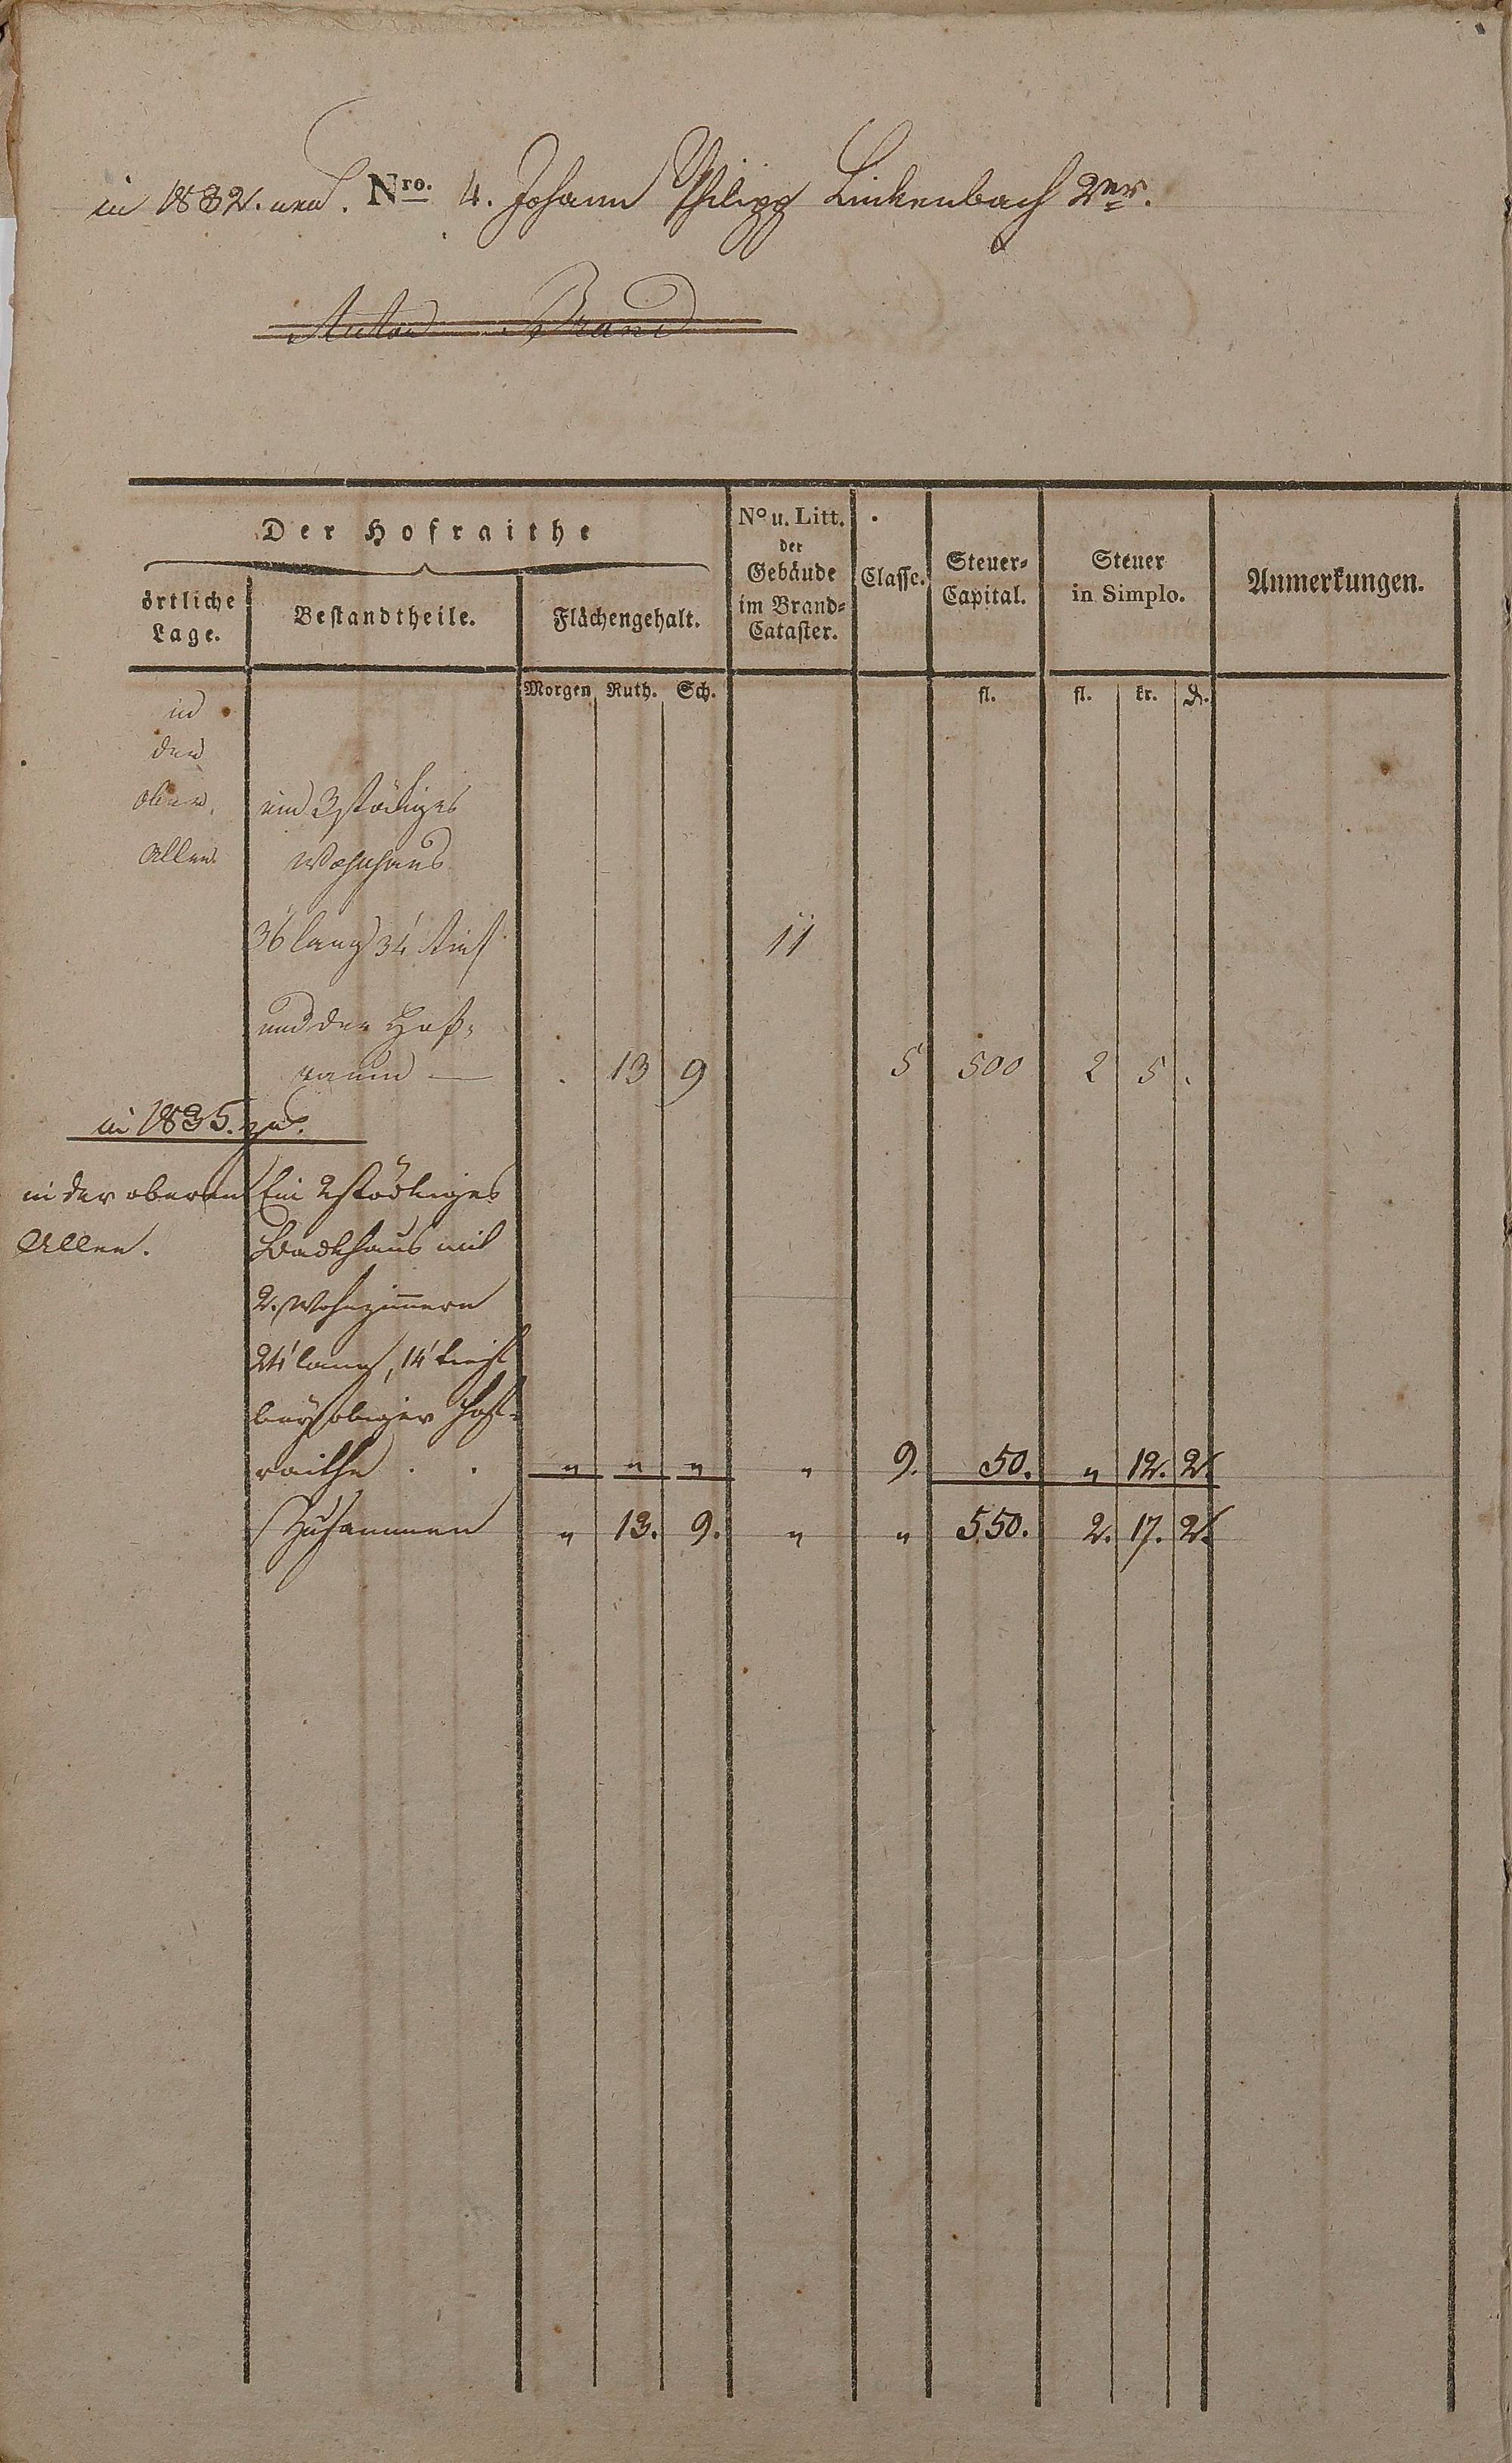 in 1832. neu. Nro. 4. Johann Philipp Linkenbach 2ter.
Anton Brand
Der Hofraithe
örtliche Lage.
Bestandtheile.
Flächengehalt.
No u. Litt. der Gebäude im Brand-Cataster.
Classe.
Steuer-Capital.
Steuer in Simplo.
Anmerkungen.
Morgen Ruth. Sch. fl. fl. kr. d.
in
der
obern
Allee ein 3stöckiges
Wohnhaus
36' lang 34' tief 11
und der Hof-
raum — . 13 9 5 500 2 5 .
in 1835. zu.
in der oberen Ein 2stöckiges
Allee. Backhaus mit
2. Wohnzimmern
24' lang, 14' tief
bey obiger Hof-
raithe . . " " " " 9. 50. " 12. 2.
Zusammen " 13. 9. " " 550. 2. 17. 2.